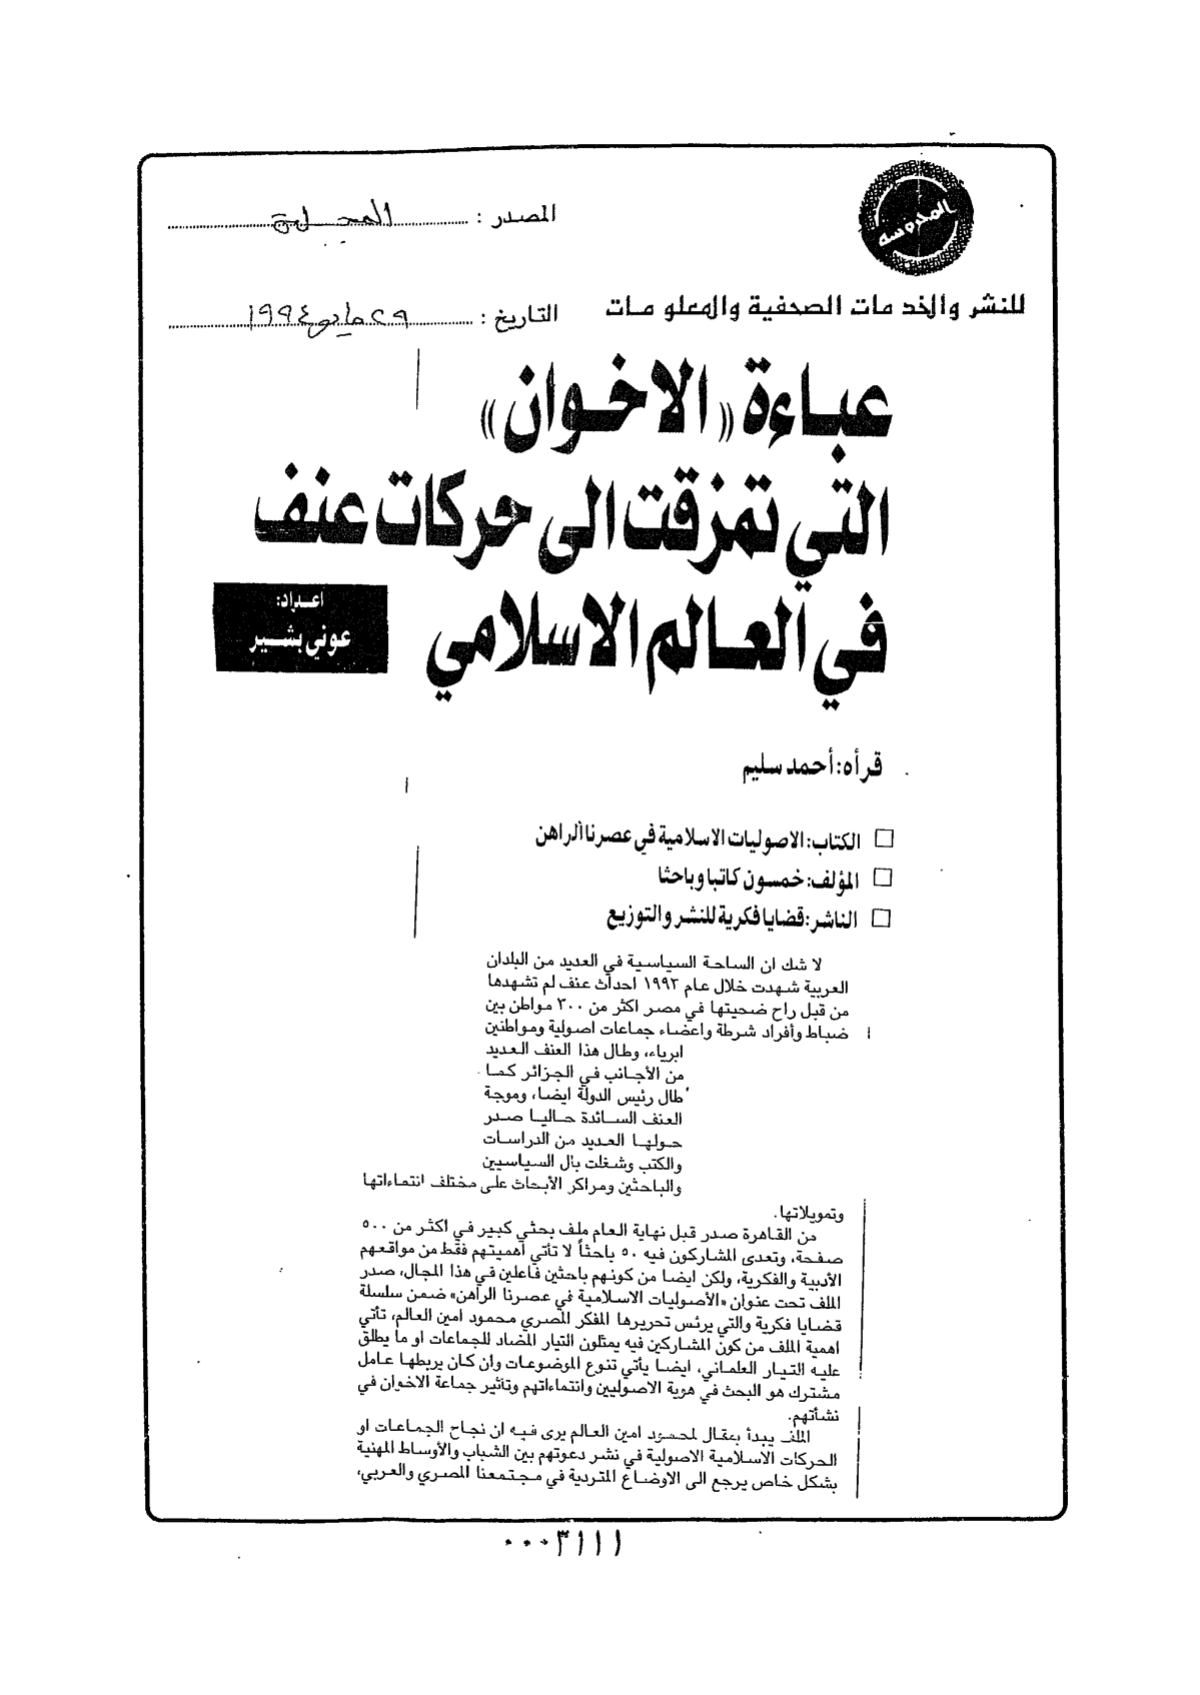 المحروسة
المصدر : المجلة
للنشر والخدمات الصحفية والمعلومات
التاريخ : ٢٩ مايو ١٩٩٤
عباءة «الاخوان»
التي تمزقت الى حركات عنف
في العالم الاسلامي
اعداد:
عوني بشير
قرأه: أحمد سليم
□ الكتاب: الاصوليات الاسلامية في عصرنا الراهن
□ المؤلف: خمسون كاتبا وباحثا
□ الناشر: قضايا فكرية للنشر والتوزيع
لا شك ان الساحة السياسية في العديد من البلدان
العربية شهدت خلال عام ١٩٩٣ احداث عنف لم تشهدها
من قبل راح ضحيتها في مصر اكثر من ٣٠٠ مواطن بين
ضباط وأفراد شرطة واعضاء جماعات اصولية ومواطنين
ابرياء، وطال هذا العنف العديد
من الأجانب في الجزائر كما
طال رئيس الدولة ايضا، وموجة
العنف السائدة حاليا صدر
حولها العديد من الدراسات
والكتب وشغلت بال السياسيين
والباحثين ومراكز الأبحاث على مختلف انتماءاتها
وتمويلاتها.
من القاهرة صدر قبل نهاية العام ملف بحثي كبير في اكثر من ٥٠٠
صفحة، وتعدى المشاركون فيه ٥٠ باحثاً لا تأتي أهميتهم فقط من مواقعهم
الأدبية والفكرية، ولكن ايضا من كونهم باحثين فاعلين في هذا المجال، صدر
الملف تحت عنوان «الأصوليات الاسلامية في عصرنا الراهن» ضمن سلسلة
قضايا فكرية والتي يرئس تحريرها المفكر المصري محمود امين العالم، تأتي
اهمية الملف من كون المشاركين فيه يمثلون التيار المضاد للجماعات او ما يطلق
عليه التيار العلماني، ايضا يأتي تنوع الموضوعات وان كان يربطها عامل
مشترك هو البحث في هوية الاصوليين وانتماءاتهم وتأثير جماعة الاخوان في
نشأتهم.
الملف يبدأ بمقال لمحمود امين العالم يرى فيه ان نجاح الجماعات او
الحركات الاسلامية الاصولية في نشر دعوتهم بين الشباب والأوساط المهنية
بشكل خاص يرجع الى الاوضاع المتردية في مجتمعنا المصري والعربي،
٠٠٠٣١١١